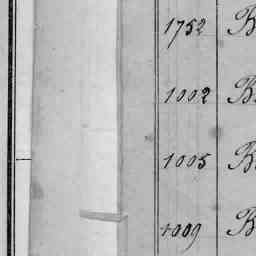 1752 B
1002 B
1005 B
1009 B